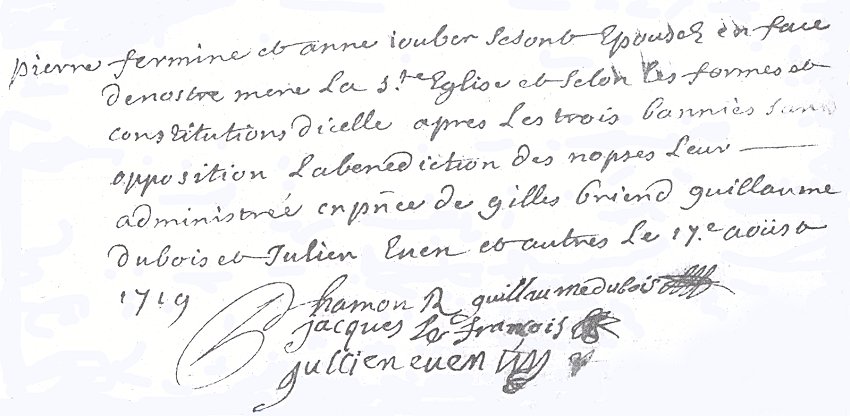 pierre fermine et anne iouber sesont Epousez en face
denostre mere La s.te Eglise et selon les formes et
constitutions dicelle apres Les trois bannies sans
opposition Labenediction des nopses Leur
administreé enpñce de gilles briend guillaume
dubois et Julien Euen et autres Le 17.e aoüst
1719
hamon R guillaumedubois
jacques Le françois
jullien euen